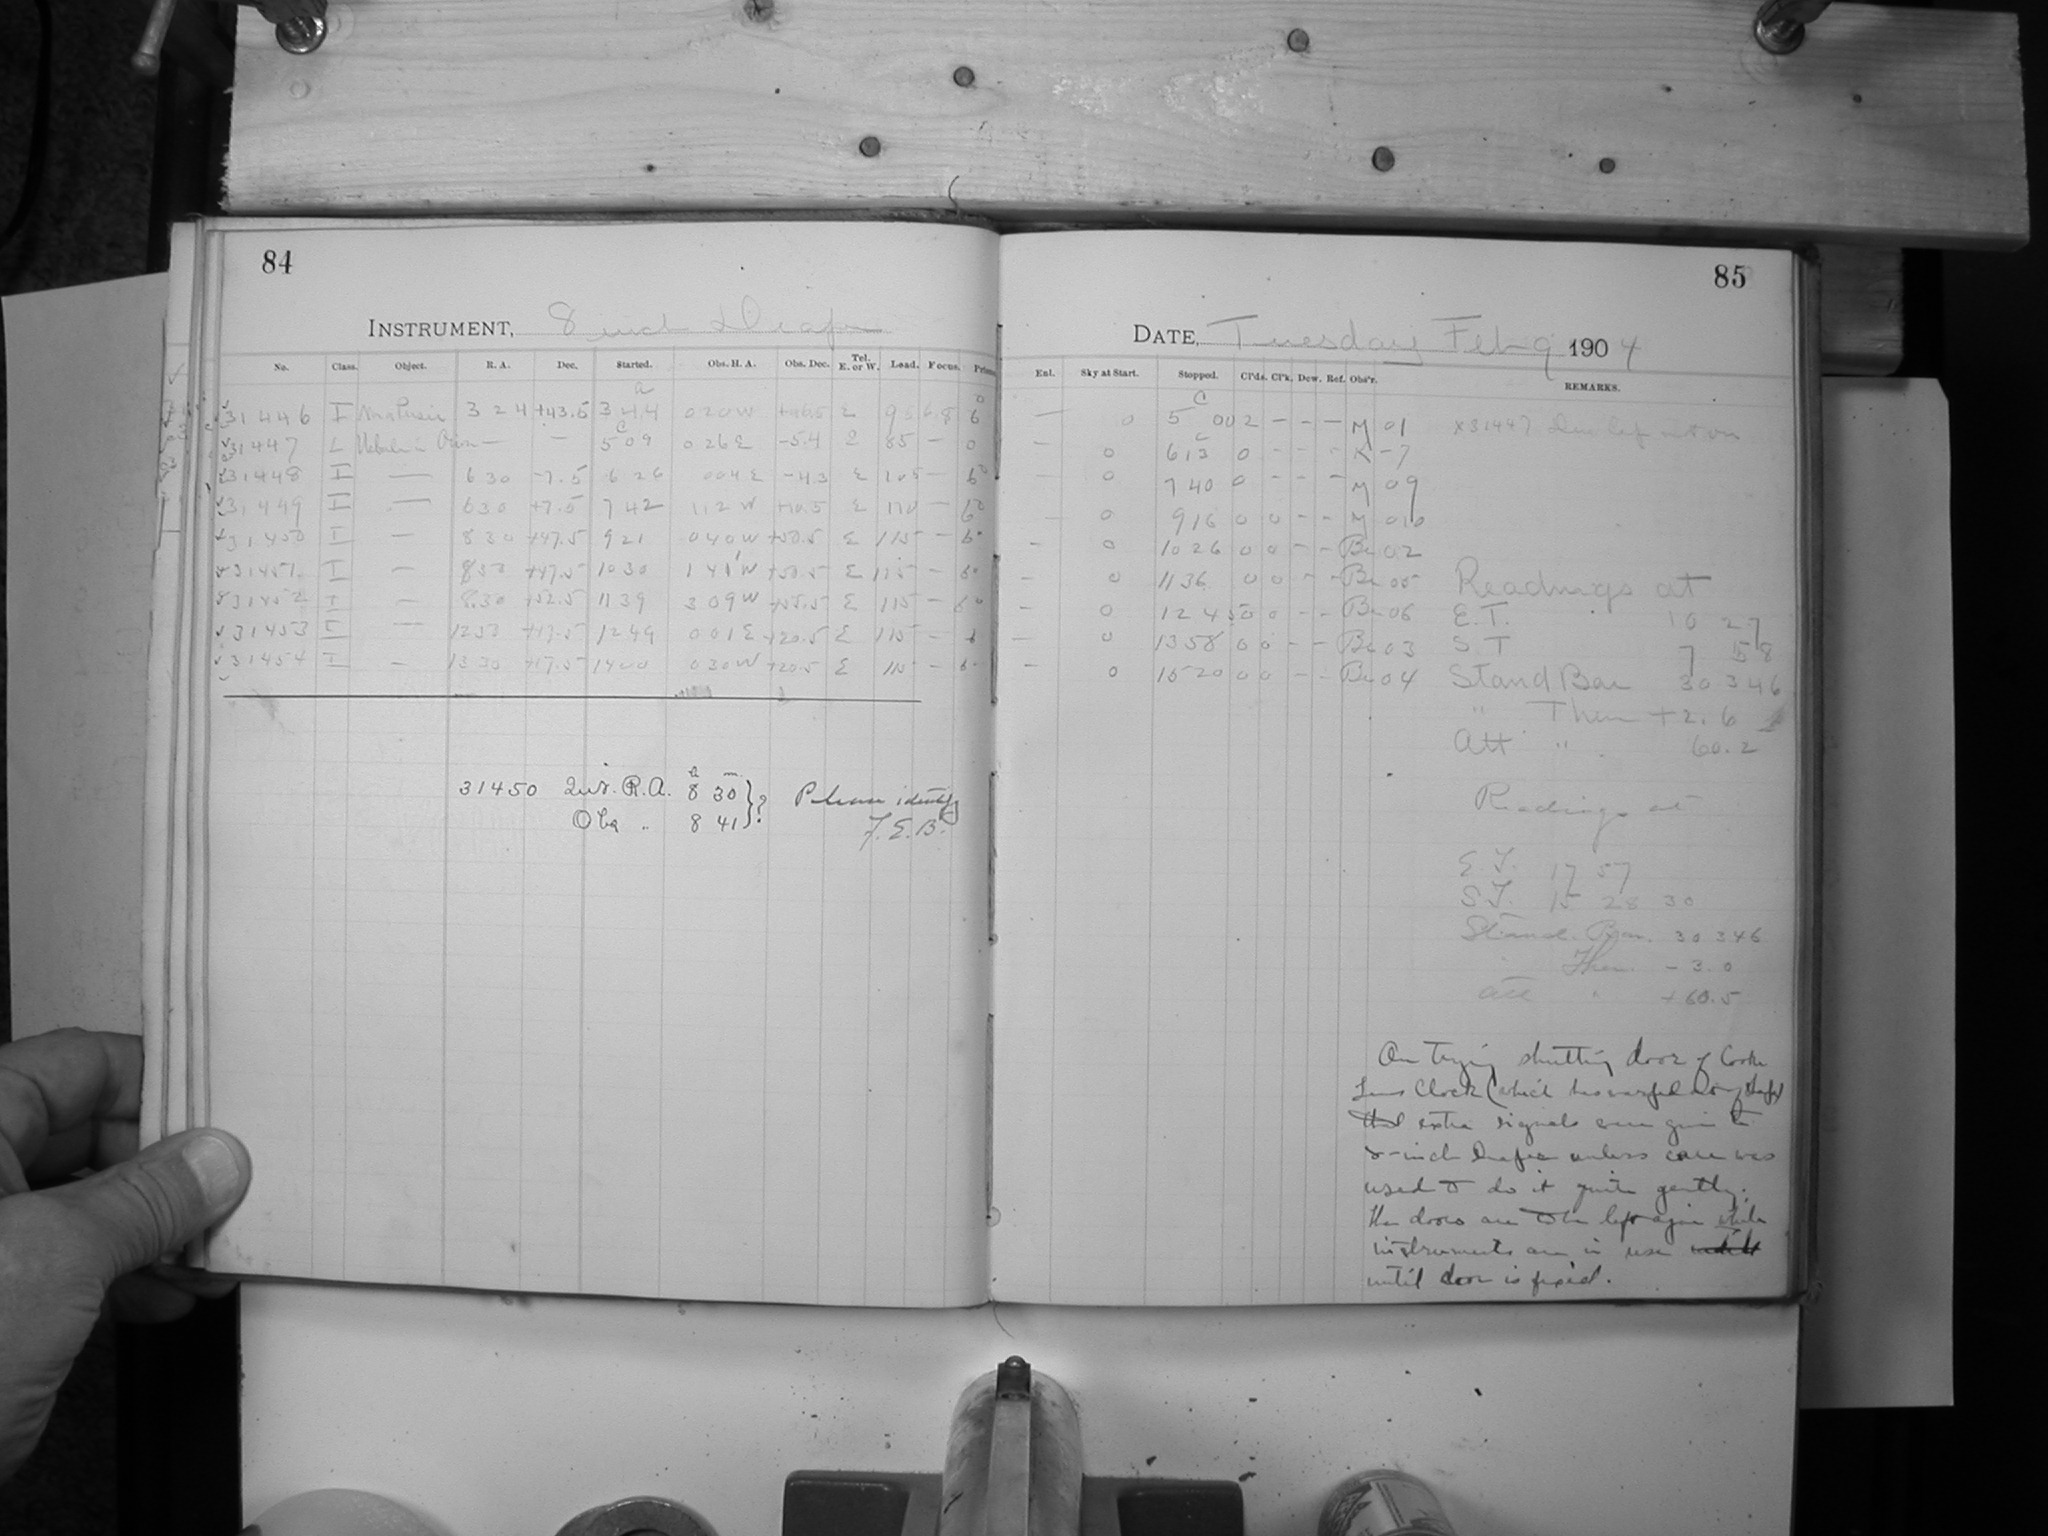 84
INSTRUMENT, 8 inch Draper
No. Class. Object. R. A. Dec. Started. Obs. H. A. Obs. Dec. Tel. E. or W. Load. Focus. Prisms
31446 I 3 24 +43.5 3 44 0 20 W E 95 6.8 6
31447 L Nebula in Orion — — 5 09 0 26 E -5.4 E 85 — 0
31448 I — 6 30 -7.5 6 26 0 04 E -4.3 E 105 — 6
31449 I — 6 30 +7.5 7 42 1 12 W +10.5 E 110 — 6
31450 I — 8 30 +47.5 9 21 0 40 W +50.5 E 115 — 6
31451 I — 8 50 +47.5 10 30 1 41 W +50.5 E 115 — 6
31452 I — 8 30 +52.5 11 39 3 09 W +55.5 E 115 — 6
31453 I — 12 53 +17.5 12 49 0 01 E +20.5 E 115 — 6
31454 I — 13 30 +17.5 14 00 0 30 W +20.5 E 115 — 6
31450 R.A. 8h 30m } ?
Obs " 8 41
Please identify
F. E. B.
85
DATE, Tuesday Feb 9 1904
Enl. Sky at Start. Stopped. Cl'ds. Cl'k. Dew. Ref. Obs'r. REMARKS.
— 0 5 00 2 – – – M 01 x31447
— 0 6 13 0 – – – K –7
— 0 7 40 0 – – – M 09
— 0 9 16 0 0 – – M 010
– 0 10 26 0 0 – – Be 02
– 0 11 36 0 0 – – Be 05
– 0 12 45 0 0 – – Be 06
– 0 13 58 0 0 – – Be 03
– 0 15 20 0 0 – – Be 04
Readings at
E.T. 10 27
S T 7 58
Stand Bar 30 346
" Ther +2.6
Att " 60.2
Readings at
E T. 17 57
S.T. 15 28 30
Stand. Bar. 30 346
Ther. – 3.0
att " +60.5
On trying shutting door of Cooke
Lens Clock (which has warped
extra signals were given to
8-inch Draper unless care was
used to do it quite gently.
The doors are to be left again while
instruments are in use
until door is fixed.